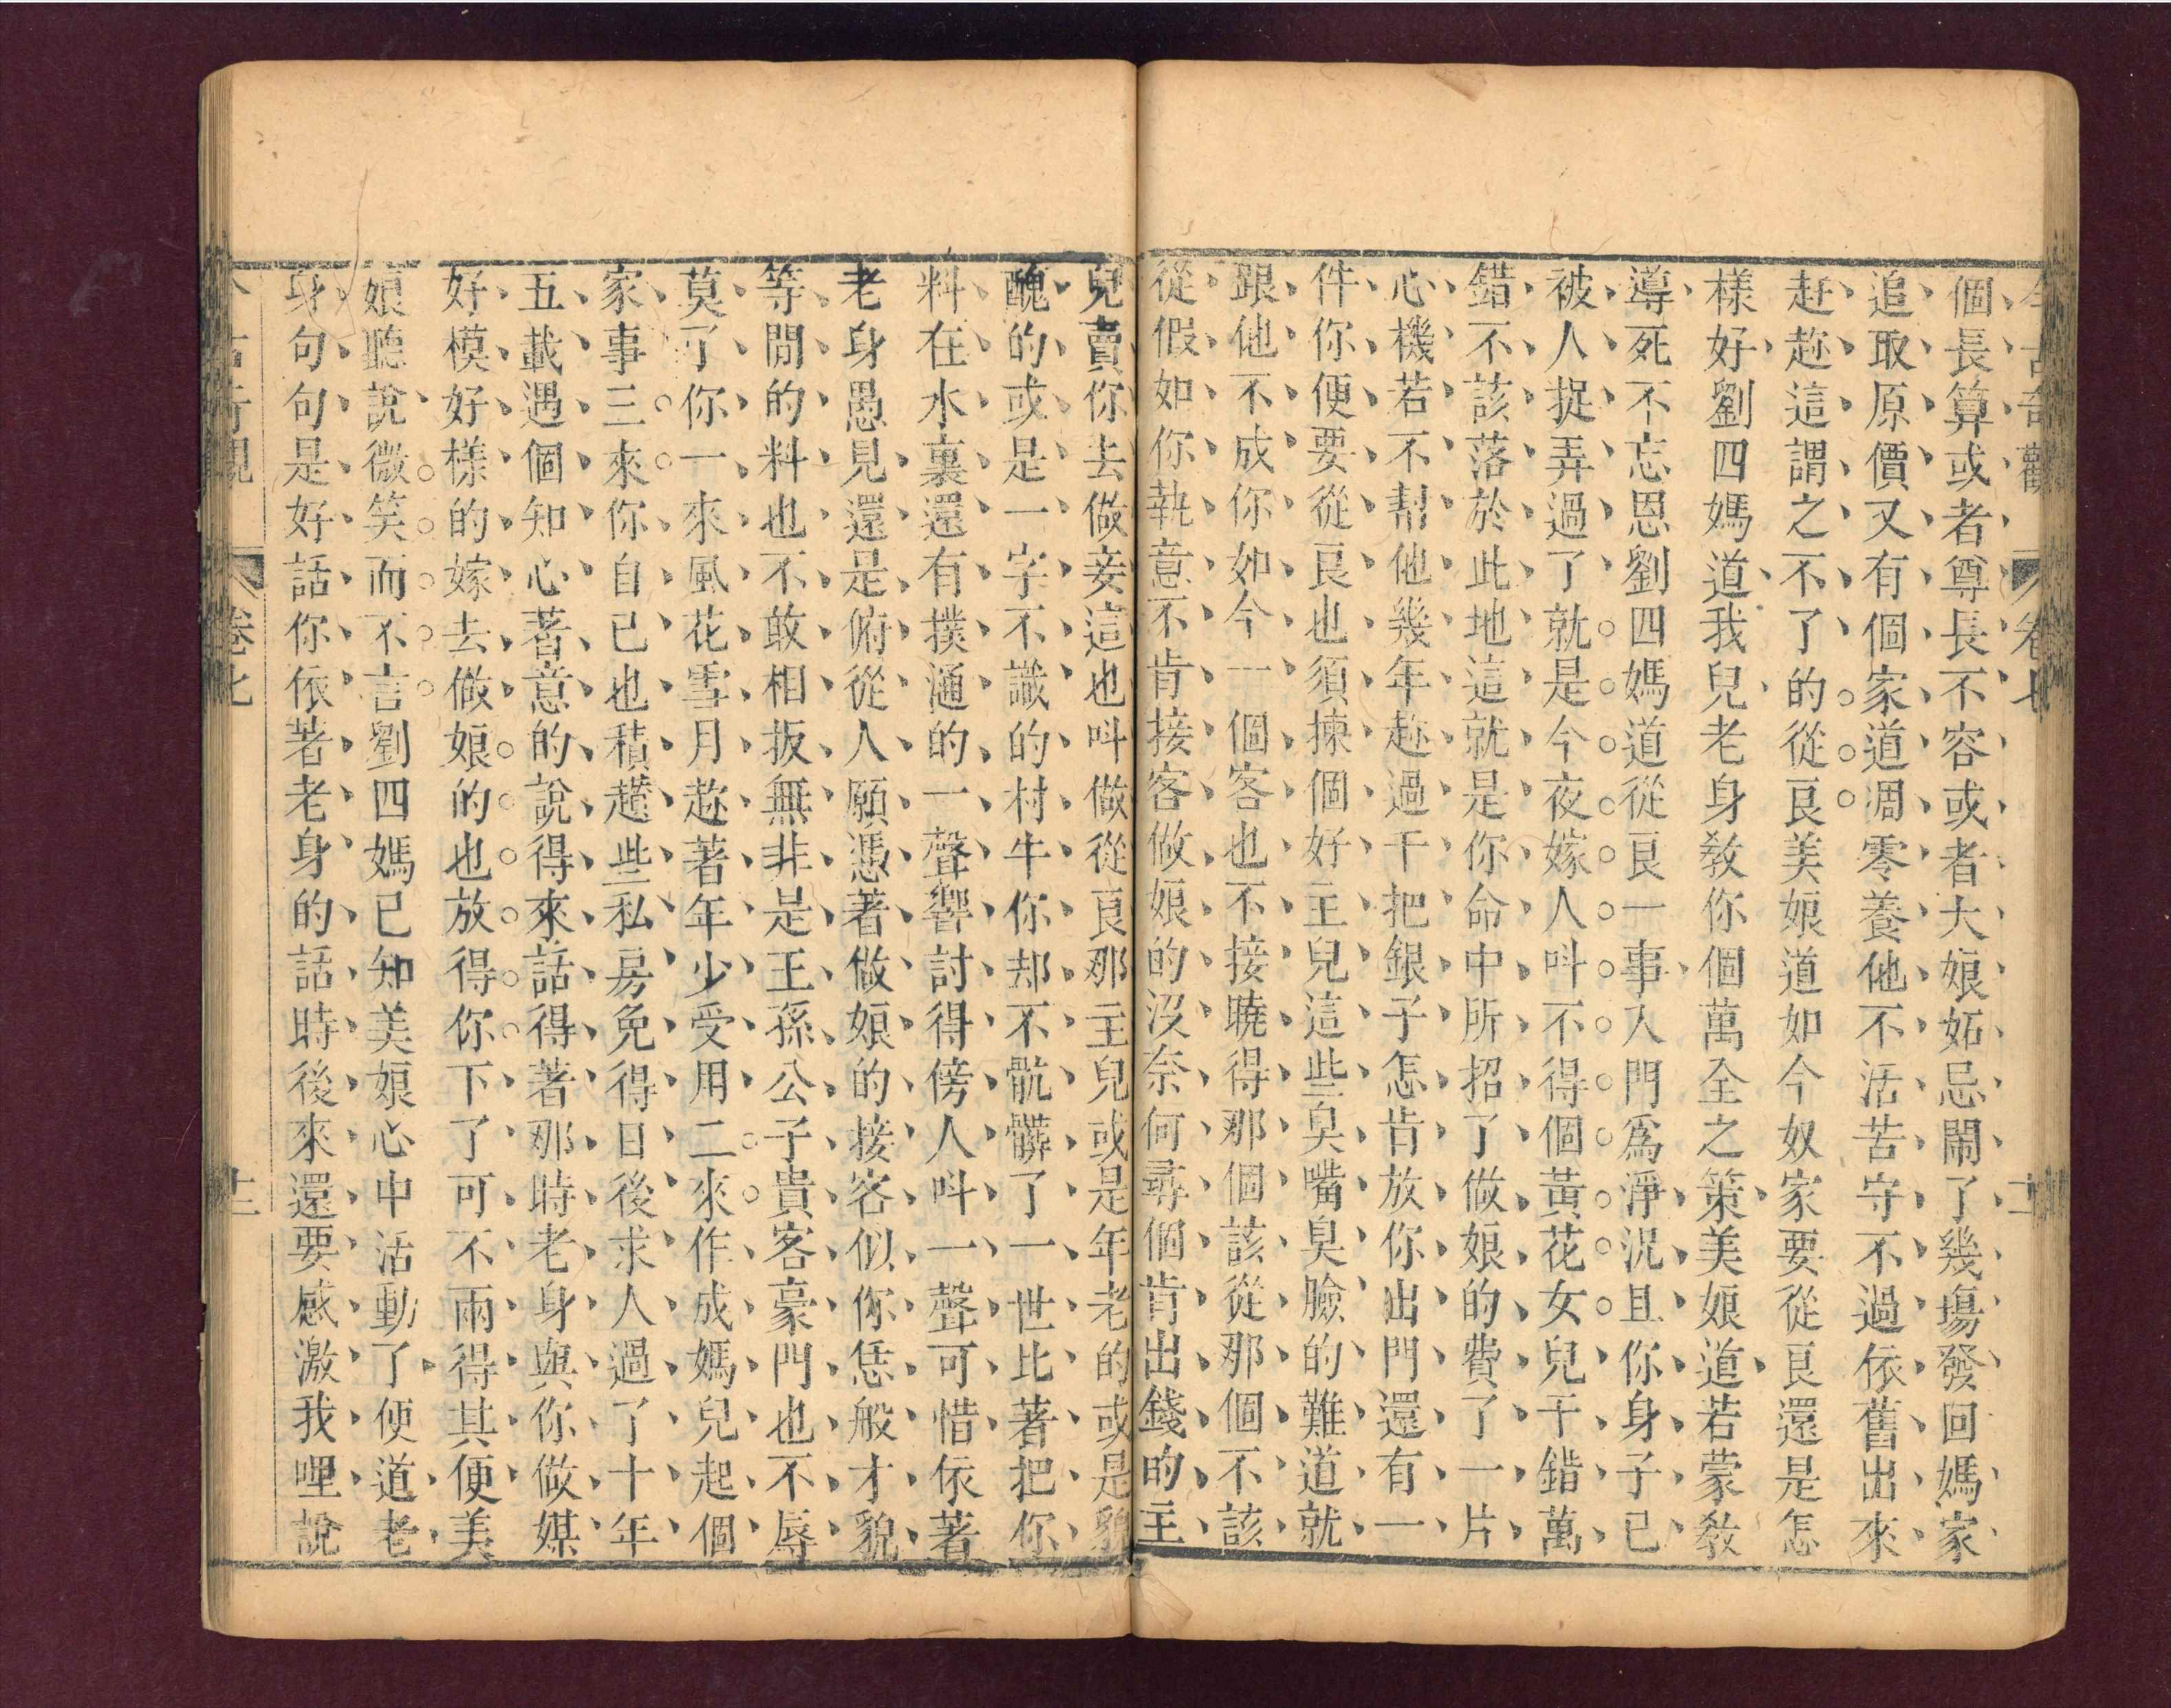 今古奇觀 卷七 十二
個長算或者尊長不容或者大娘妬忌鬧了幾場發回媽家
追取原價又有個家道凋零養他不活苦守不過依舊出來
赶趂這謂之不了的從良美娘道如今奴家要從良還是怎
樣好劉四媽道我兒老身敎你個萬全之策美娘道若蒙敎
導死不忘恩劉四媽道從良一事入門爲淨況且你身子已
被人捉弄過了就是今夜嫁人叫不得個黃花女兒千錯萬
錯不該落於此地這就是你命中所招了做娘的費了一片
心機若不幇他幾年趂過千把銀子怎肯放你出門還有一
件你便要從良也須揀個好主兒這些臭嘴臭臉的難道就
跟他不成你如今一個客也不接曉得那個該從那個不該
從假如你執意不肯接客做娘的沒奈何尋個肯出錢的主
兒賣你去做妾這也叫做從良那主兒或是年老的或是貌
醜的或是一字不識的村牛你却不骯髒了一世比著把你
料在水裏還有撲通的一聲響討得傍人叫一聲可惜依著
老身愚見還是俯從人願憑著做娘的接客似你恁般才貌
等閒的料也不敢相扳無非是王孫公子貴客豪門也不辱
莫了你一來風花雪月趂著年少受用二來作成媽兒起個
家事三來你自己也積趲些私房免得日後求人過了十年
五載遇個知心著意的說得來話得著那時老身與你做媒
好模好樣的嫁去做娘的也放得你下了可不兩得其便美
娘聽說微笑而不言劉四媽已知美娘心中活動了便道老
身句句是好話你依著老身的話時後來還要感激我哩說
古奇觀 卷七 十二